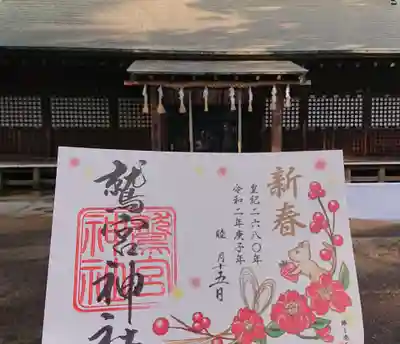 新春
皇紀二六八〇年
令和二年庚子年
睦月十五日
鷲宮神社
鷲宮神社